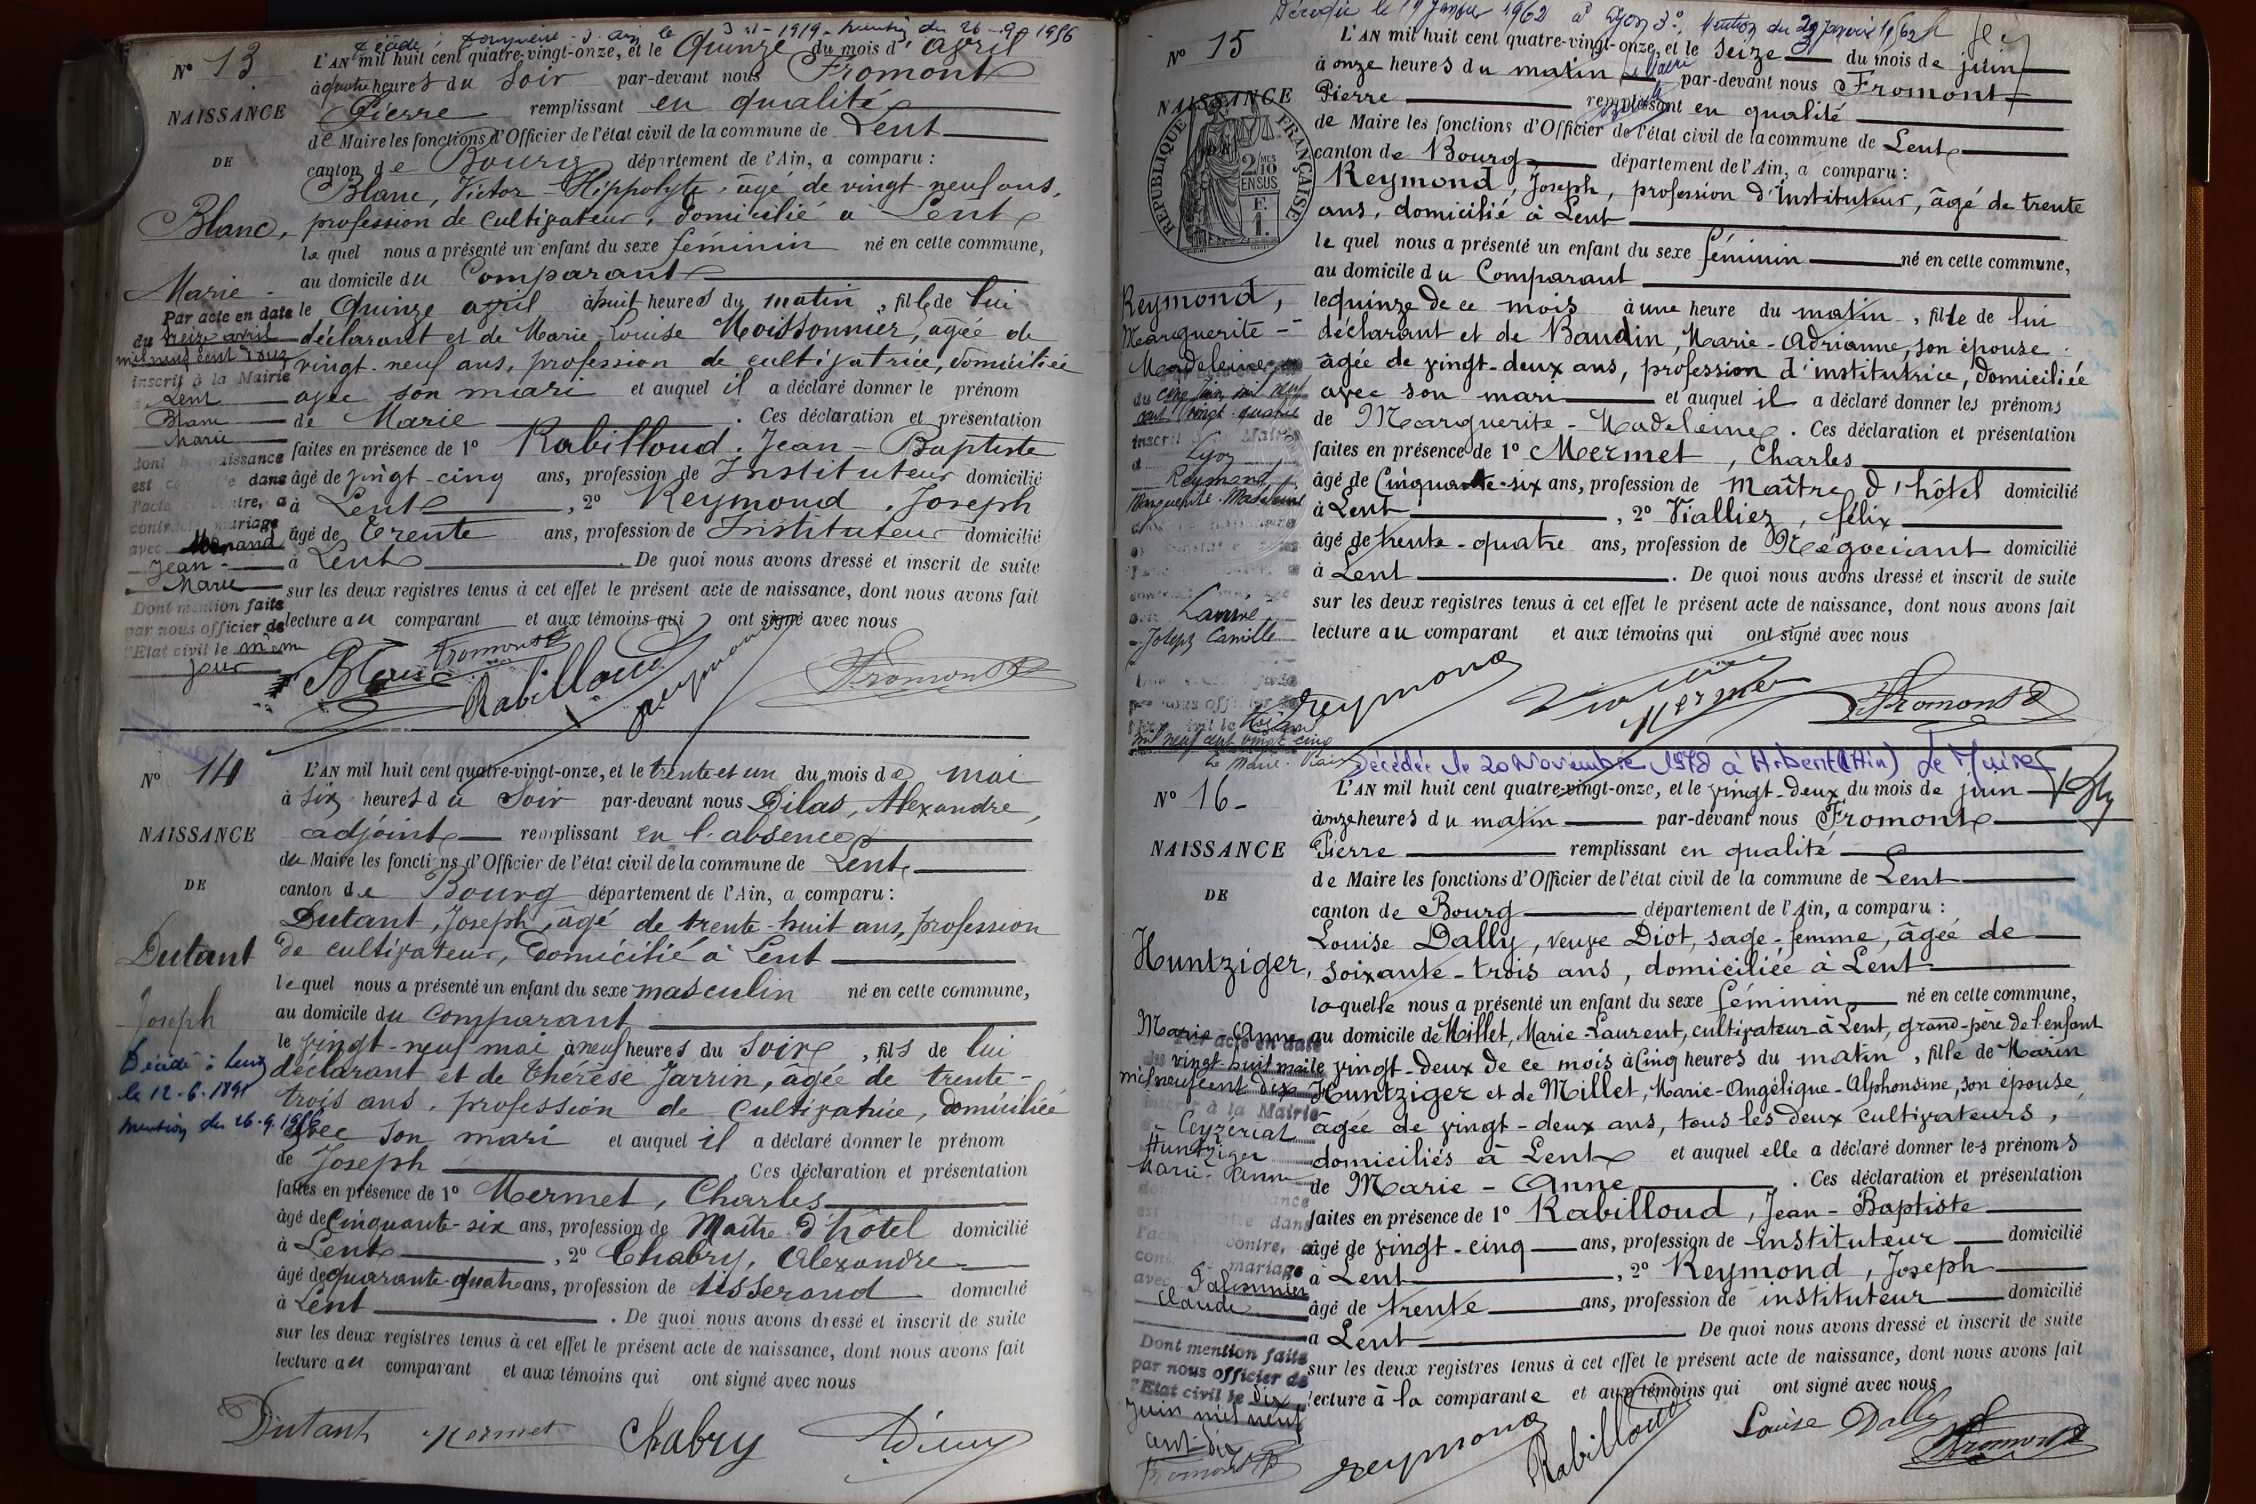 Décédé 3-1-1919. mention du 26-9-1956
N° 13
L'AN mil huit cent quatre-vingt-onze, et le Quinze du mois d'avril
à quatre heures du soir par-devant nous Fromont
NAISSANCE
Pierre remplissant en qualité
de Maire les fonctions d'Officier de l'état civil de la commune de Lent
DE
canton de Bourg département de l'Ain, a comparu :
Blanc, Victor Hippolyte, âgé de vingt-neuf ans,
Blanc,
profession de cultivateur, domicilié à Lent
lequel nous a présenté un enfant du sexe féminin né en cette commune,
au domicile du Comparant
Marie
le Quinze avril à huit heures du matin, fille de lui
déclarant et de Marie-Louise Moissonnier, âgée de
vingt-neuf ans, profession de cultivatrice, domiciliée
avec son mari et auquel il a déclaré donner le prénom
de Marie. Ces déclaration et présentation
faites en présence de 1° Rabilloud, Jean-Baptiste
âgé de vingt-cinq ans, profession de Instituteur domicilié
à Lent, 2° Reymond, Joseph
âgé de trente ans, profession de Instituteur domicilié
à Lent. De quoi nous avons dressé et inscrit de suite
sur les deux registres tenus à cet effet le présent acte de naissance, dont nous avons fait
lecture au comparant et aux témoins qui ont signé avec nous
Par acte en date
du treize avril
mil neuf cent douze
inscrit à la Mairie
Lent
Blanc
Marie
dont la naissance
est constatée dans
l'acte ci-contre, a
contracté mariage
avec
Jean-
Marie
Dont mention faite
par nous officier de
l'Etat civil le même
jour
Fromont
Blanc Rabilloud Reymond Fromont
N° 14
L'AN mil huit cent quatre-vingt-onze, et le trente et un du mois de mai
à six heures du soir par-devant nous Dilas, Alexandre,
NAISSANCE
adjoint remplissant en l'absence
du Maire les fonctions d'Officier de l'état civil de la commune de Lent
DE
canton de Bourg département de l'Ain, a comparu :
Dutant, Joseph, âgé de trente-huit ans, profession
Dutant
de cultivateur, domicilié à Lent
lequel nous a présenté un enfant du sexe masculin né en cette commune,
Joseph
au domicile du comparant
le vingt-neuf mai à neuf heures du soir, fils de lui
déclarant et de Thérèse Jarrin, âgée de trente-
trois ans, profession de cultivatrice, domiciliée
avec son mari et auquel il a déclaré donner le prénom
de Joseph Ces déclaration et présentation
faites en présence de 1° Mermet, Charles
âgé de Cinquante-six ans, profession de Maître d'hôtel domicilié
à Lent, 2° Chabry, Alexandre
âgé de quarante-quatre ans, profession de tisserand domicilié
à Lent. De quoi nous avons dressé et inscrit de suite
sur les deux registres tenus à cet effet le présent acte de naissance, dont nous avons fait
lecture au comparant et aux témoins qui ont signé avec nous
Décédé à Lent
le 12-6-1891
mention du 26-9-1956
Dutant Mermet Chabry
Décédée le 19 Janvier 1962 à Lyon 3°. Mention du 29 Janvier 1962
N° 15
L'AN mil huit cent quatre-vingt-onze, et le seize du mois de juin
à onze heures du matin par-devant nous Fromont
NAISSANCE
Pierre remplissant en qualité
de Maire les fonctions d'Officier de l'état civil de la commune de Lent
RÉPUBLIQUE FRANÇAISE
2/10 EN SUS
F. 1.
canton de Bourg département de l'Ain, a comparu :
Reymond, Joseph, profession d'Instituteur, âgé de trente
ans, domicilié à Lent
lequel nous a présenté un enfant du sexe féminin né en cette commune,
au domicile du Comparant
Reymond,
Marguerite-
Madeleine
le quinze de ce mois à une heure du matin, fille de lui
déclarant et de Baudin, Marie-Adrianne, son épouse
âgée de vingt-deux ans, profession d'institutrice, domiciliée
avec son mari et auquel il a déclaré donner les prénoms
de Marguerite-Madeleine. Ces déclaration et présentation
faites en présence de 1° Mermet, Charles
âgé de Cinquante-six ans, profession de Maître d'hôtel domicilié
à Lent, 2° Vialliez, félix
âgé de trente-quatre ans, profession de Négociant domicilié
à Lent. De quoi nous avons dressé et inscrit de suite
sur les deux registres tenus à cet effet le présent acte de naissance, dont nous avons fait
lecture au comparant et aux témoins qui ont signé avec nous
du cinq juin mil neuf
cent vingt-quatre
inscrit à la Mairie
Lyon
Reymond
Marguerite-Madeleine
Joseph Camille
mil neuf cent vingt cinq
Le Maire
Reymond Mermet Fromont
Décédée le 20 Novembre 1978 à Arbent (Ain) Le Maire
N° 16-
L'AN mil huit cent quatre-vingt-onze, et le vingt-deux du mois de juin
à onze heures du matin par-devant nous Fromont
NAISSANCE
Pierre remplissant en qualité
de Maire les fonctions d'Officier de l'état civil de la commune de Lent
DE
canton de Bourg département de l'Ain, a comparu :
Louise Dally, veuve Diot, sage-femme, âgée de
Huntziger,
soixante-trois ans, domiciliée à Lent
laquelle nous a présenté un enfant du sexe féminin né en cette commune,
Marie-Anne
au domicile de Millet, Marie-Laurent, cultivateur à Lent, grand-père de l'enfant
le vingt-deux de ce mois à Cinq heures du matin, fille de Marin
Huntziger et de Millet, Marie-Angélique-Alphonsine, son épouse
âgée de vingt-deux ans, tous les deux cultivateurs,
domiciliés à Lent et auquel elle a déclaré donner les prénoms
de Marie-Anne. Ces déclaration et présentation
faites en présence de 1° Rabilloud, Jean-Baptiste
âgé de vingt-cinq ans, profession de instituteur domicilié
à Lent, 2° Reymond, Joseph
âgé de trente ans, profession de instituteur domicilié
à Lent De quoi nous avons dressé et inscrit de suite
sur les deux registres tenus à cet effet le présent acte de naissance, dont nous avons fait
lecture à la comparante et aux témoins qui ont signé avec nous
Par acte en date
du vingt-huit mai
mil neuf cent dix
inscrit à la Mairie
Ceyzériat
Huntziger
Marie-Anne
mariage
avec
Claude
Dont mention faite
par nous officier de
l'Etat civil le dix
Juin mil neuf
cent dix
Fromont
Reymond Rabilloud Louise Dally Fromont